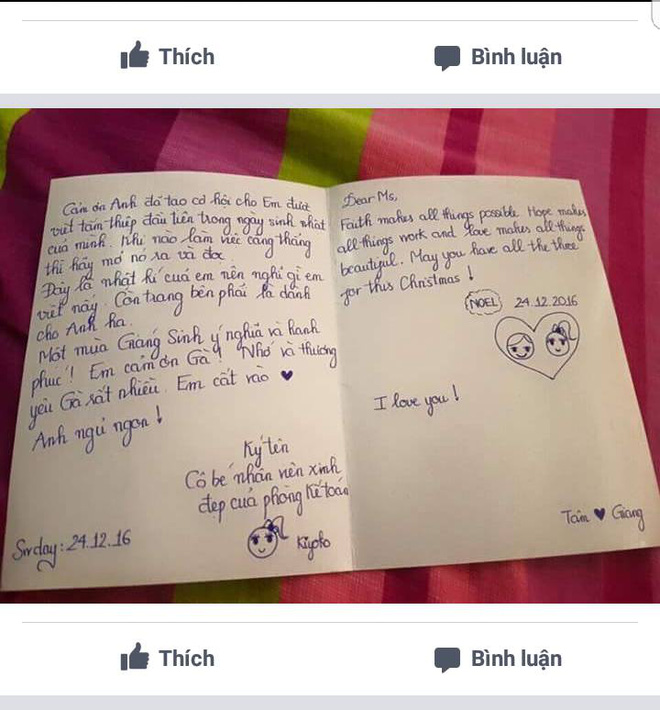 Thích Bình luận
Cảm ơn Anh đã tạo cơ hội cho Em được
viết tấm thiệp đầu tiên trong ngày sinh nhật
của mình. Khi nào làm việc căng thẳng
thì hãy mở nó ra và đọc
Đây là nhật kí của em nên nghĩ gì em
viết nấy. Còn trang bên phải là dành
cho Anh ha.
Một mùa Giáng Sinh ý nghĩa và hạnh
phúc! Em cảm ơn Gà! Nhớ và thương
yêu Gà rất nhiều. Em cất vào ♥
Anh ngủ ngon!
Ký tên
Cô bé nhân viên xinh
đẹp của phòng Kế toán
Kiyoko
Sn'day: 24.12.16
Dear Ms,
Faith makes all things possible Hope makes
all things work and love makes all things
beautiful. May you have all the three
for this Christmas!
NOEL 24.12.2016
I love you!
Tâm ♥ Giang
Thích Bình luận